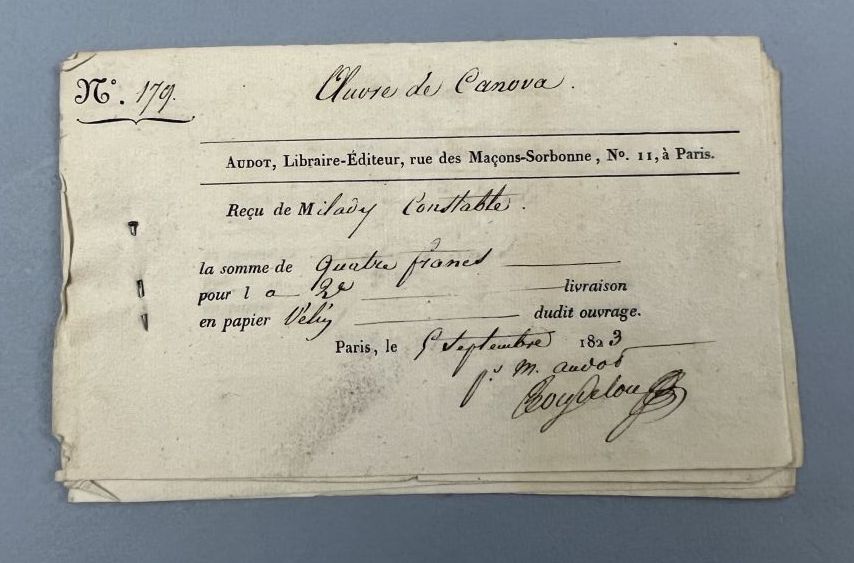 Nº. 179.
Œuvre de Canova.
AUDOT, Libraire-Éditeur, rue des Maçons-Sorbonne, Nº. 11, à Paris.
Reçu de Milady Constable.
la somme de quatre francs
pour l a 2e livraison
en papier Vélin dudit ouvrage.
Paris, le 5 Septembre 1823
pr M. audot